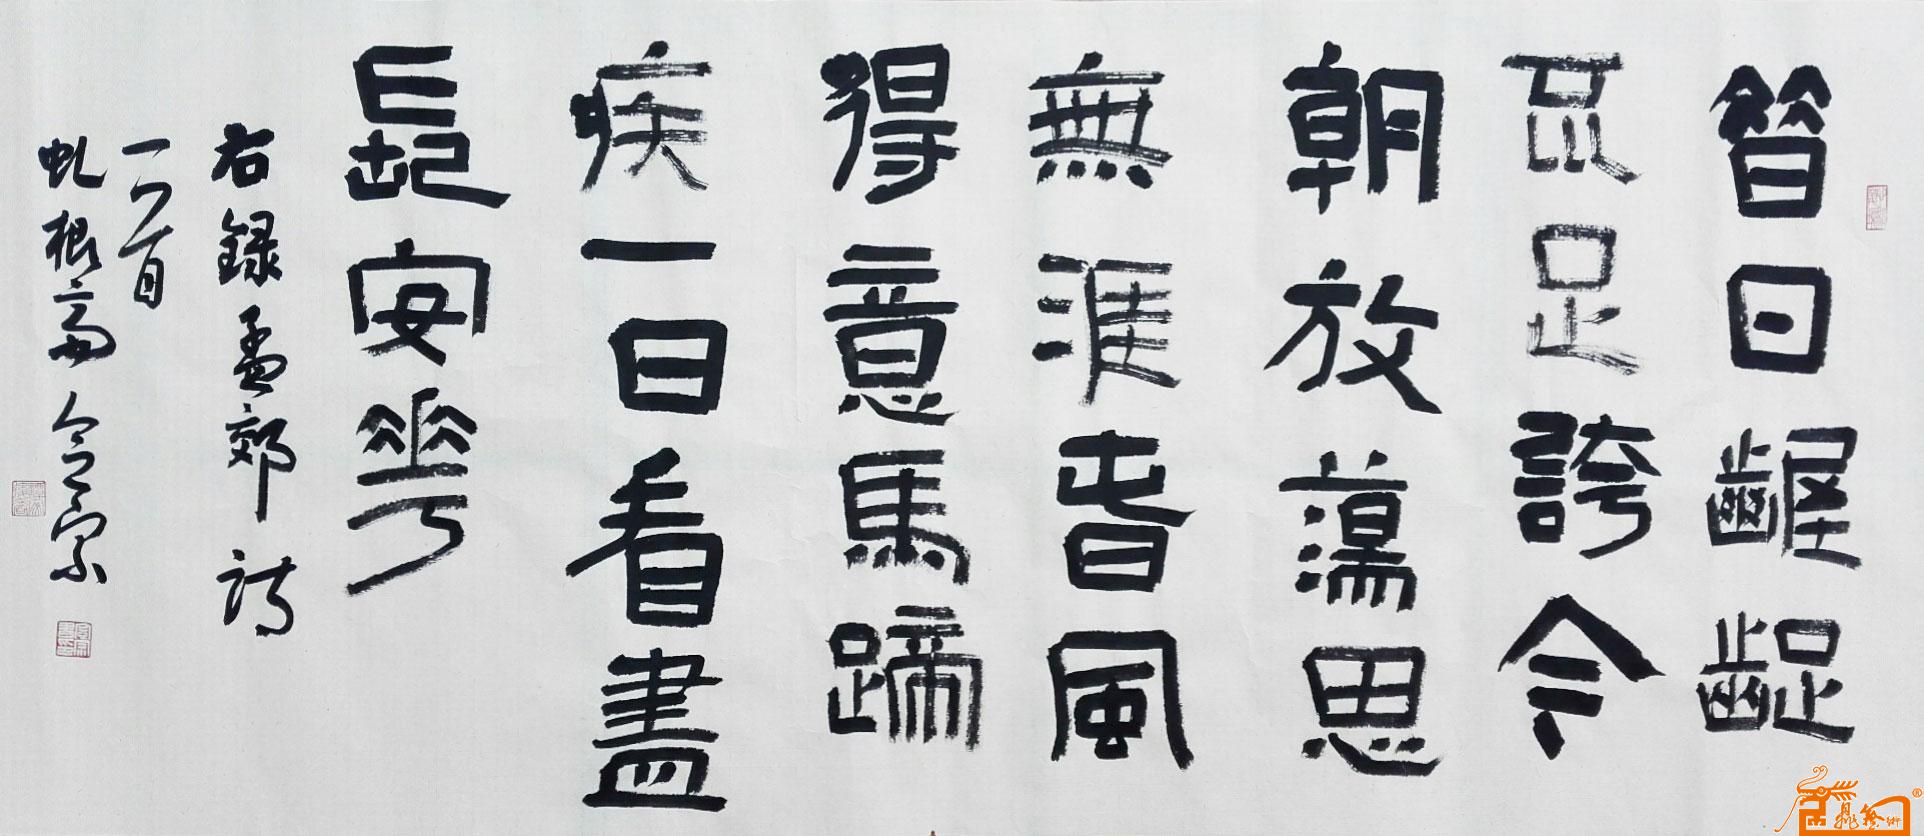 昔日齷齪
不足誇今
朝放蕩思
無涯春風
得意馬蹄
疾一日看盡
長安花
右録孟郊詩
一首
虬根斋